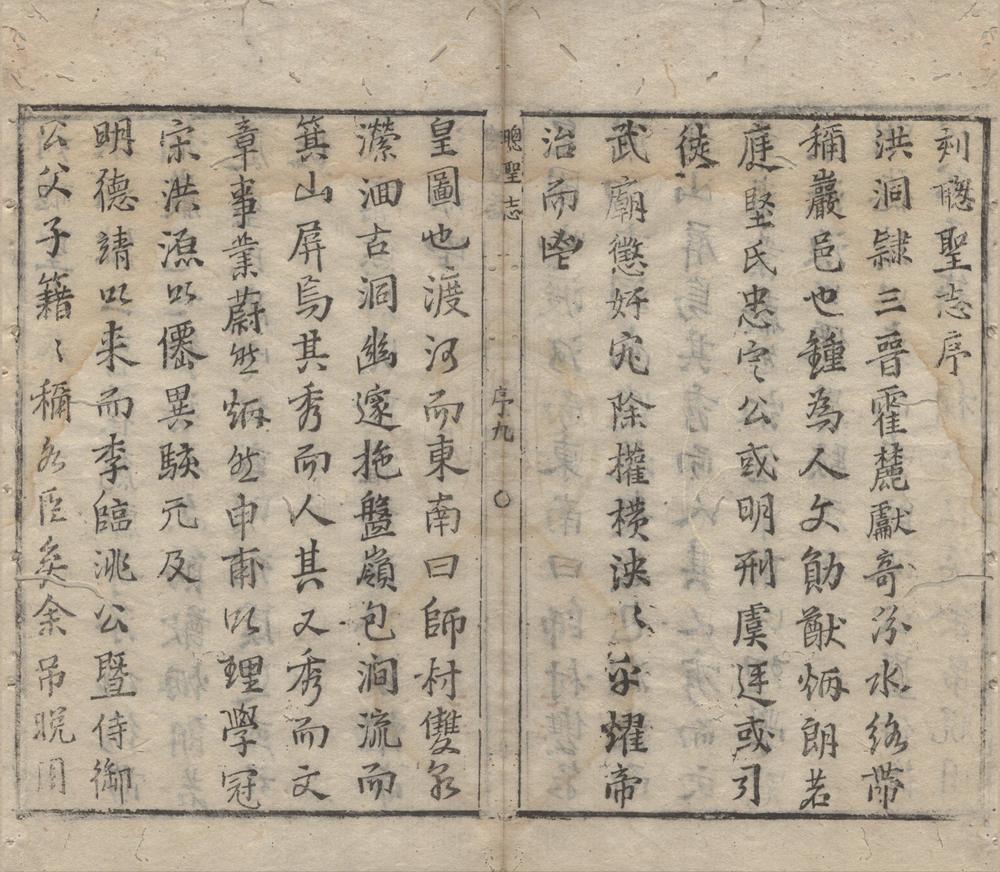 刻聰聖志序
洪洞隸三晉霍麓獻奇汾水絡帶
稱巖邑也鍾為人文勛猷炳朗若
庭堅氏忠定公或明刑虞廷或引
徒
武廟懲奸宄除權橫泱〻乎耀帝
治而
聰聖志
序九
皇圖也渡河而東南曰師村雙泉
瀠洄古洞幽邃拖盤嶺包澗流而
箕山屏焉其秀而人其又秀而文
章事業蔚然炳然申甫以理學冠
宋洪源以儒異駭元及
明德靖以来而李臨洮公暨侍御
公父子籍〻稱名臣矣余吊晥用